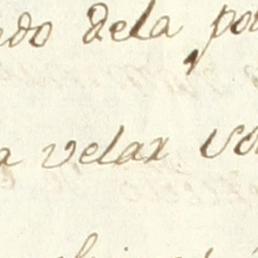 do dela po
a velax vo